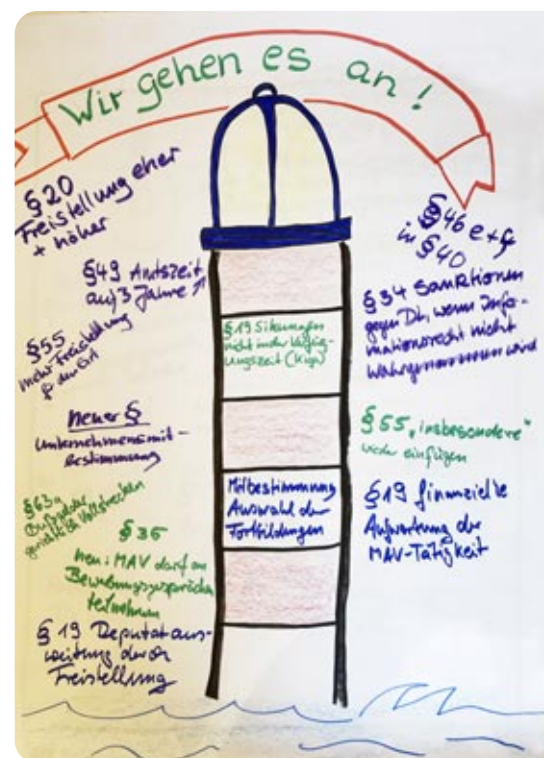 Wir gehen es an!
§20
Freistellung eher
+ höher
§49 Amtszeit
auf 3 Jahre ↗
§55
mehr Freistellung
für den
neuer §
Unternehmensmit-
bestimmung
§63a
Bußgelder
gerichtlich Vollstrecken
§36
neu: MAV darf an
Bewerbungsgesprächen
teilnehmen
§19 Deputataus-
weitung durch
Freistellung
§19 Sitzungen
nicht in der
(Kiga)
Mitbestimmung
Auswahl der
Fortbildungen
§46 e+f
in §40
§34 Sanktionen
gegen DG, wenn Info-
mationsrecht nicht
wahrgenommen wird
§55 „insbesondere"
wieder einfügen
§19 finanzielle
Aufwertung der
MAV-Tätigkeit